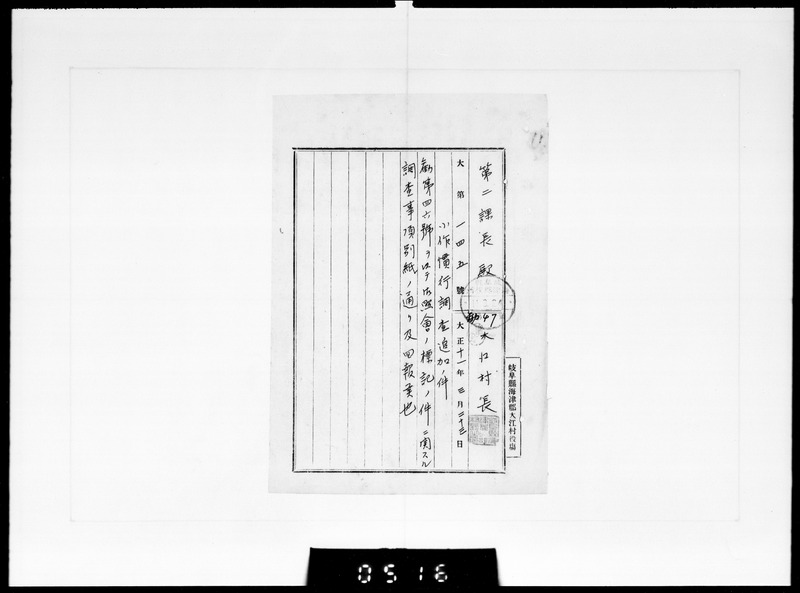 第二課長殿
大江村長
大第一四五號
大正十一年三月二十三日
小作慣行調査追加ノ件
勸第四六號ヲ以テ御照會ノ標記ノ件ニ関スル
調査事項別紙ノ通リ及回報候也
勸47
岐阜縣海津郡大江村役場
0516